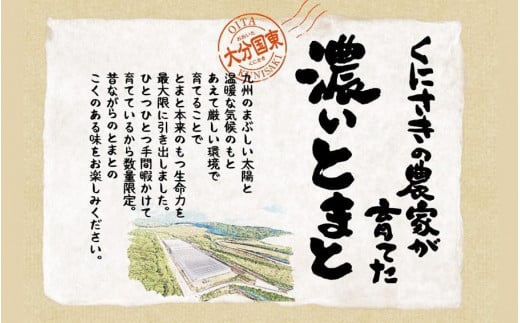 くにさきの農家が
育てた
濃いとまと
OITA
おおいた
大分国東
くにさき
KUNISAKI
九州のまぶしい太陽と
温暖な気候のもと
あえて厳しい環境で
育てることで
とまと本来のもつ生命力を
最大限に引き出しました。
ひとつひとつ手間暇かけて
育てているから数量限定。
昔ながらのとまとの
こくのある味をお楽しみください。